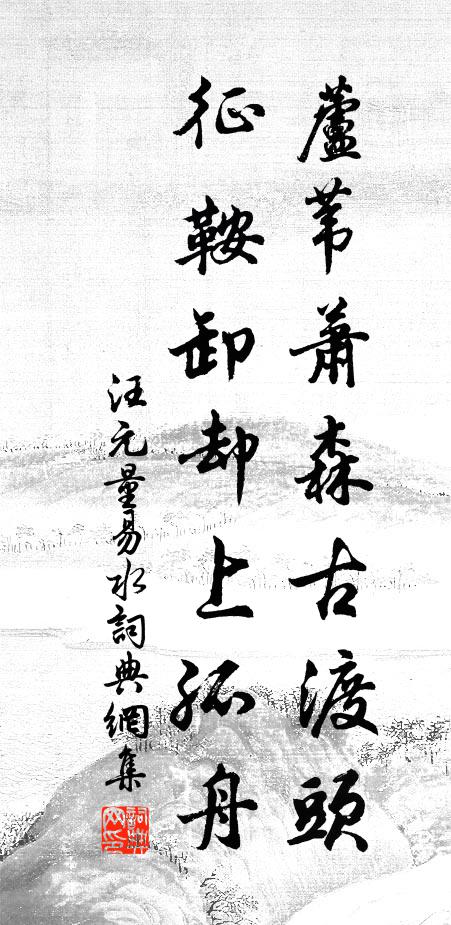 蘆葦蕭森古渡頭
征鞍卸却上孤舟
汪元量易水詞典網集